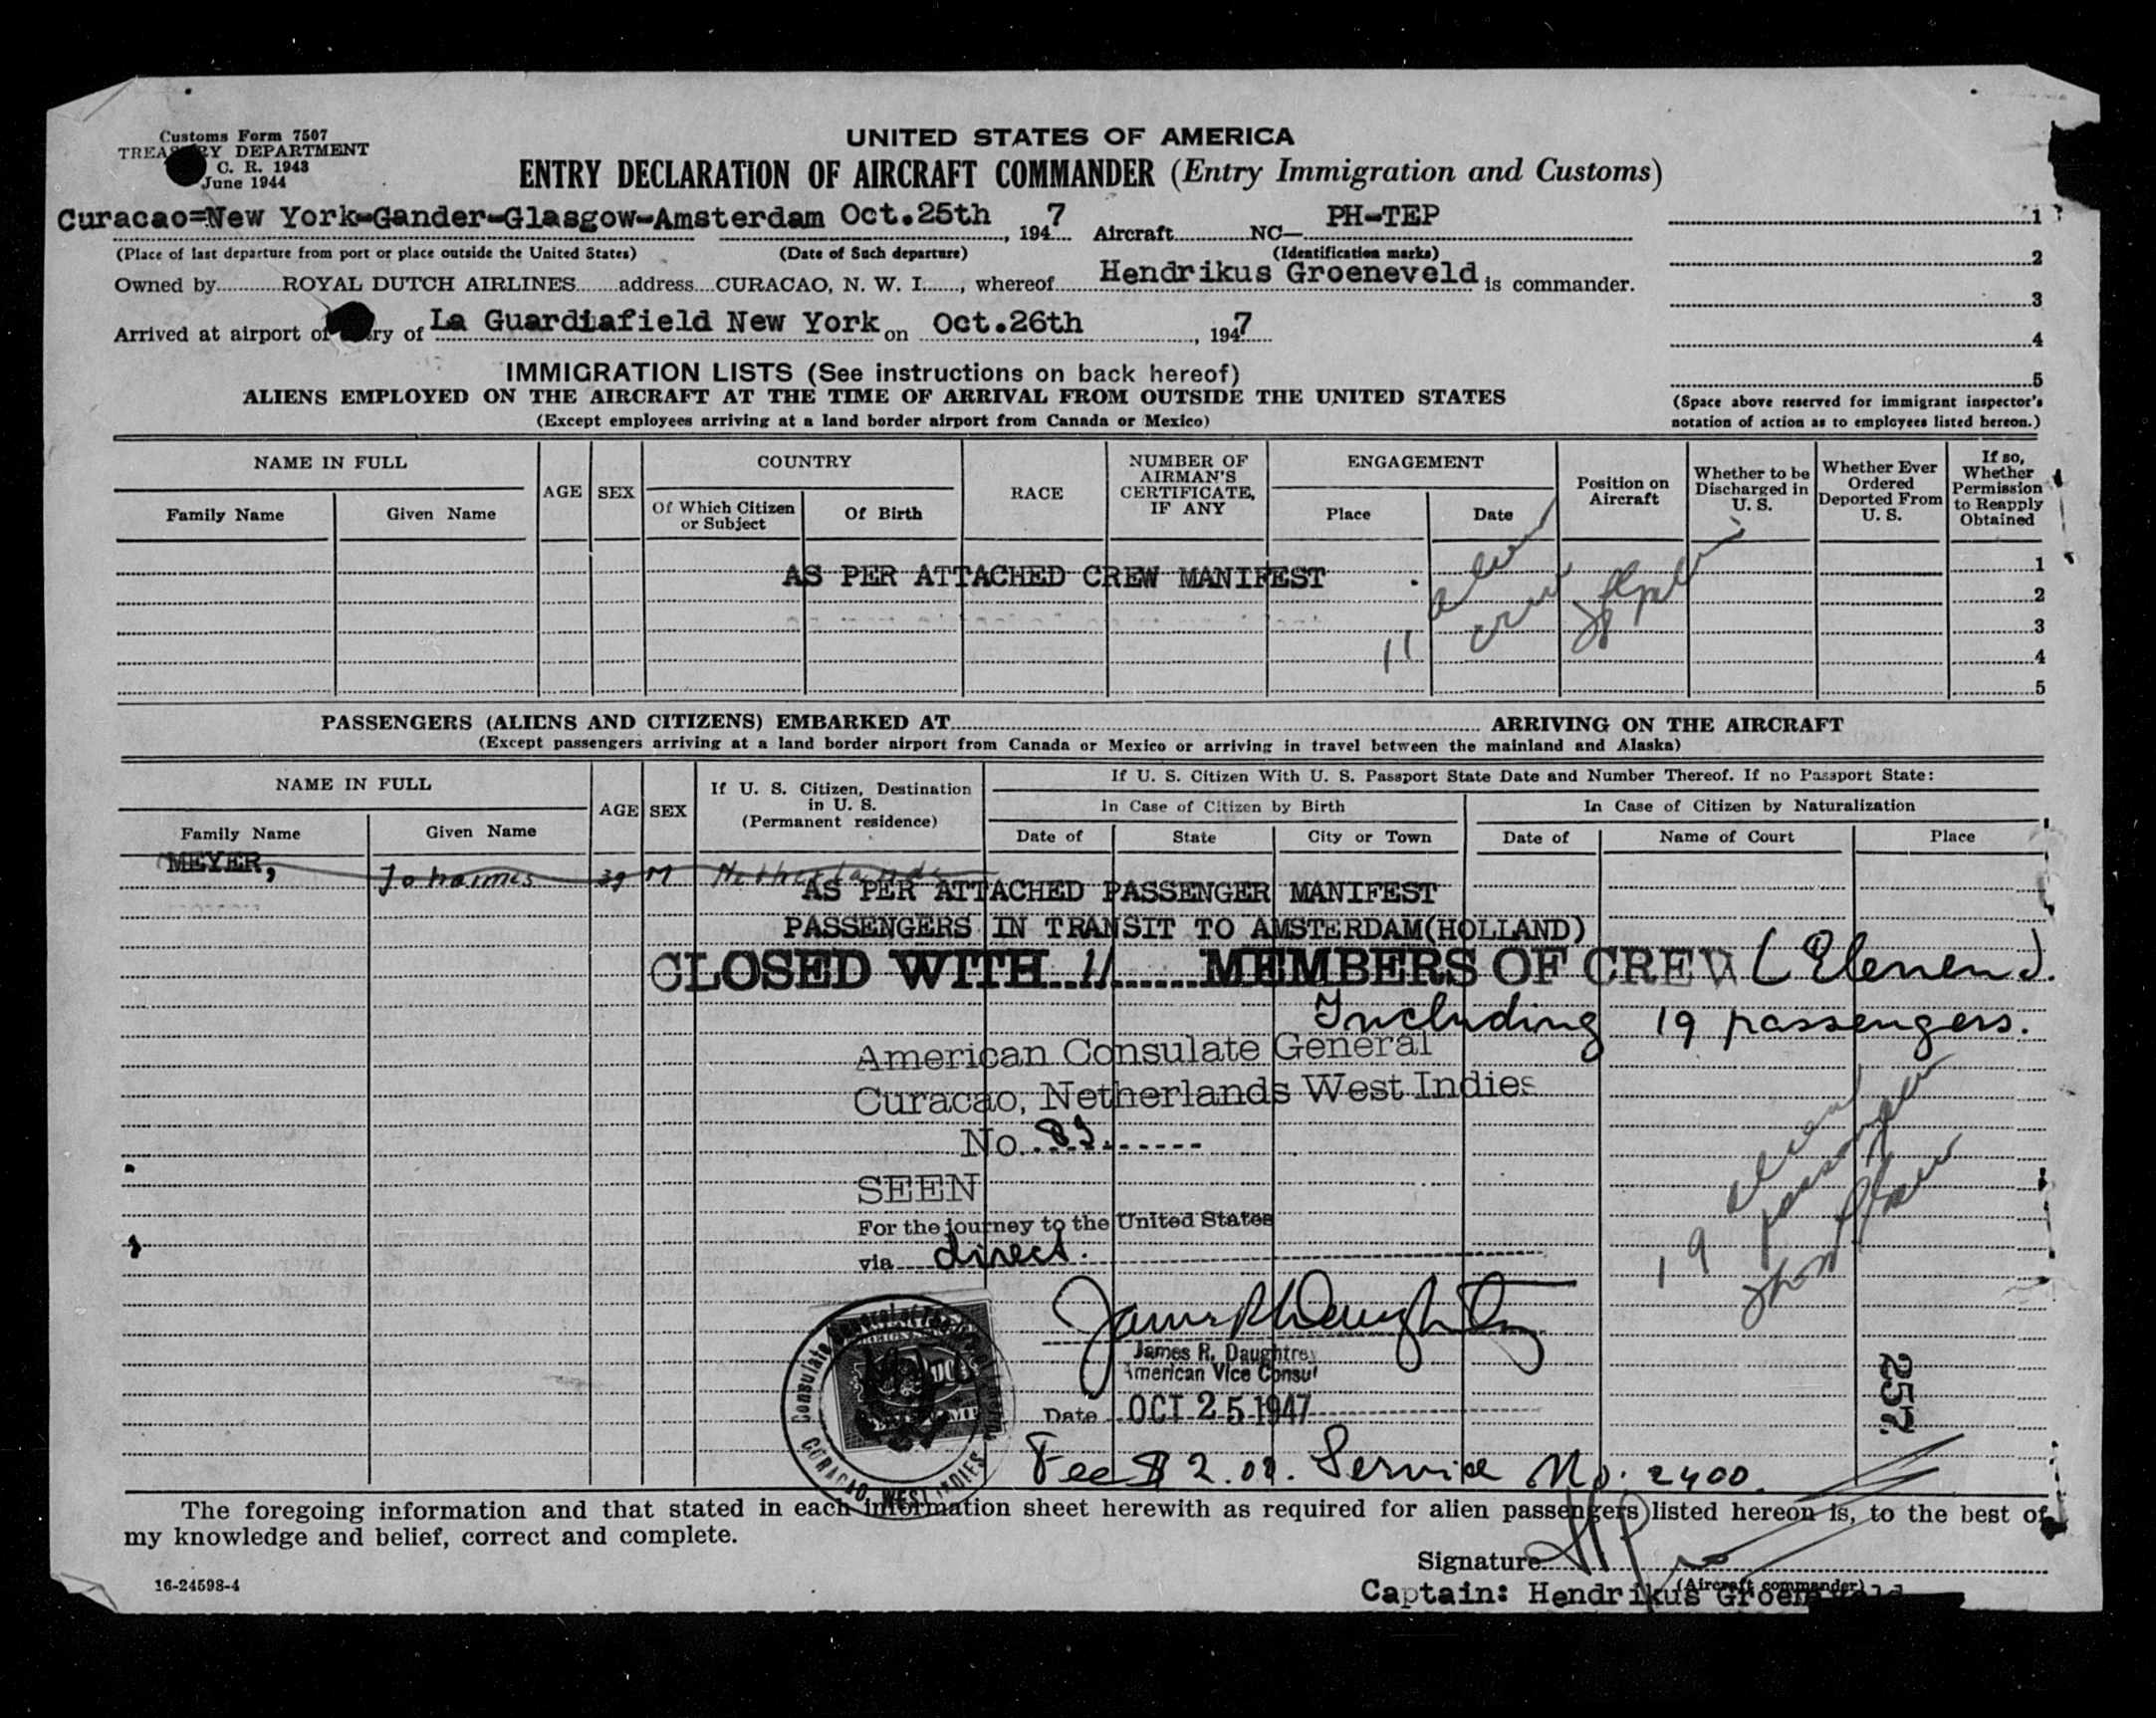 Customs Form 7507
TREASURY DEPARTMENT
C. R. 1943
June 1944
UNITED STATES OF AMERICA
ENTRY DECLARATION OF AIRCRAFT COMMANDER (Entry Immigration and Customs)
Curacao=New York-Gander-Glasgow-Amsterdam Oct.25th, 1947 Aircraft NC— PH-TEP
(Place of last departure from port or place outside the United States) (Date of Such departure) (Identification marks)
Owned by ROYAL DUTCH AIRLINES address CURACAO, N. W. I., whereof Hendrikus Groeneveld is commander.
Arrived at airport of ry of La Guardiafield New York on Oct.26th, 1947
1
2
3
4
5
(Space above reserved for immigrant inspector's
notation of action as to employees listed hereon.)
IMMIGRATION LISTS (See instructions on back hereof)
ALIENS EMPLOYED ON THE AIRCRAFT AT THE TIME OF ARRIVAL FROM OUTSIDE THE UNITED STATES
(Except employees arriving at a land border airport from Canada or Mexico)
NAME IN FULL
Family Name
Given Name
AGE
SEX
COUNTRY
Of Which Citizen
or Subject
Of Birth
RACE
NUMBER OF
AIRMAN'S
CERTIFICATE,
IF ANY
ENGAGEMENT
Place
Date
Position on
Aircraft
Whether to be
Discharged in
U. S.
Whether Ever
Ordered
Deported From
U. S.
If so,
Whether
Permission
to Reapply
Obtained
AS PER ATTACHED CREW MANIFEST
11 alien
crew
1
2
3
4
5
PASSENGERS (ALIENS AND CITIZENS) EMBARKED AT ARRIVING ON THE AIRCRAFT
(Except passengers arriving at a land border airport from Canada or Mexico or arriving in travel between the mainland and Alaska)
NAME IN FULL
Family Name
Given Name
AGE
SEX
If U. S. Citizen, Destination
in U. S.
(Permanent residence)
If U. S. Citizen With U. S. Passport State Date and Number Thereof. If no Passport State:
In Case of Citizen by Birth
Date of
State
City or Town
In Case of Citizen by Naturalization
Date of
Name of Court
Place
MEYER, Johannes 39 M Netherlands
AS PER ATTACHED PASSENGER MANIFEST
PASSENGERS IN TRANSIT TO AMSTERDAM(HOLLAND)
CLOSED WITH 11 MEMBERS OF CREW (Eleven).
Including 19 passengers.
American Consulate General
Curacao, Netherlands West Indies
No.
SEEN
For the journey to the United States
via direct.
19 alien
passengers
James R. Daughtrey
American Vice Consul
Date OCT 25 1947
257.
Consulate
CURACAO, WEST INDIES
Fee $ 2.00. Service No. 2400.
The foregoing information and that stated in each information sheet herewith as required for alien passengers listed hereon is, to the best of
my knowledge and belief, correct and complete.
Signature
(Aircraft commander)
Captain: Hendrikus Groeneveld
16-24598-4